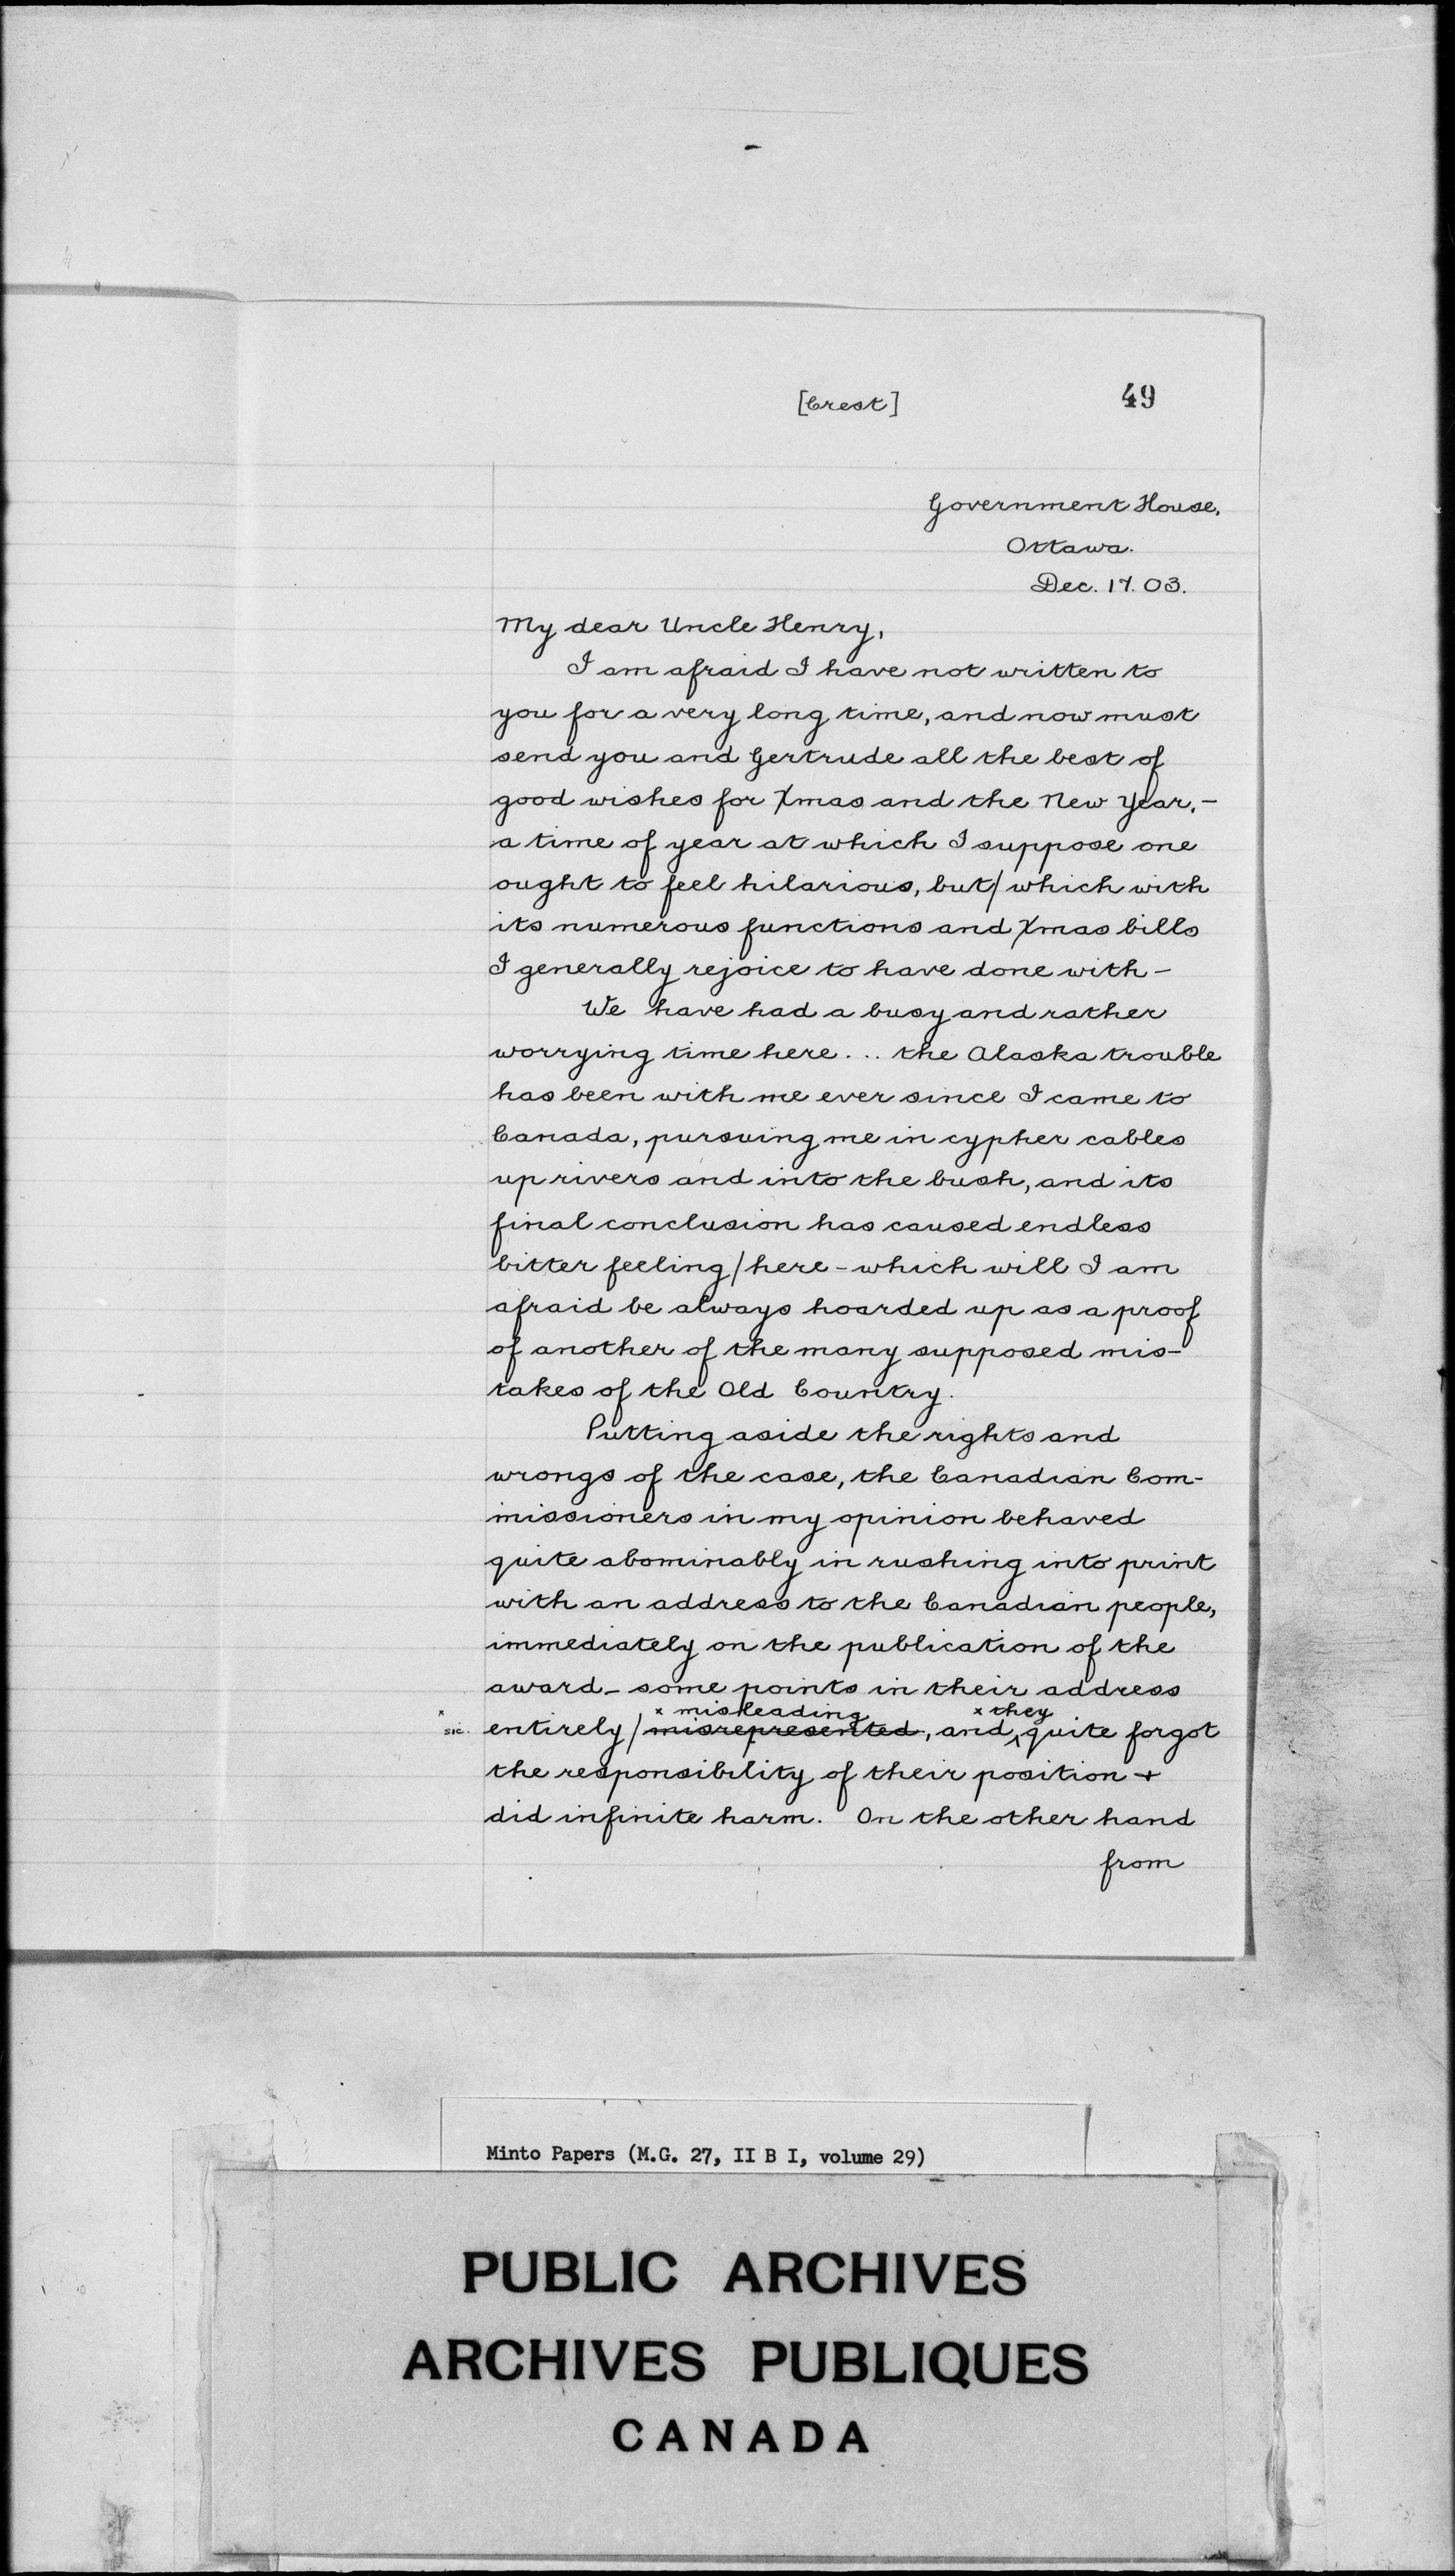 [Crest]
49
Government House,
Ottawa.
Dec. 17. 03.
My dear Uncle Henry,
I am afraid I have not written to
you for a very long time, and now must
send you and Gertrude all the best of
good wishes for Xmas and the New Year, -
a time of year at which I suppose one
ought to feel hilarious, but/ which with
its numerous functions and Xmas bills
I generally rejoice to have done with -
We have had a busy and rather
worrying time here... the Alaska trouble
has been with me ever since I came to
Canada, pursuing me in cypher cables
up rivers and into the bush, and its
final conclusion has caused endless
bitter feeling/here - which will I am
afraid be always hoarded up as a proof
of another of the many supposed mis-
takes of the Old Country.
Putting aside the rights and
wrongs of the case, the Canadian Com-
missioners in my opinion behaved
quite abominably in rushing into print
with an address to the Canadian people,
immediately on the publication of the
award - some points in their address
x misleading x they
x sic. entirely / misrepresented, and ‸ quite forgot
the responsibility of their position +
did infinite harm. On the other hand
from
Minto Papers (M.G. 27, II B I, volume 29)
PUBLIC ARCHIVES
ARCHIVES PUBLIQUES
CANADA